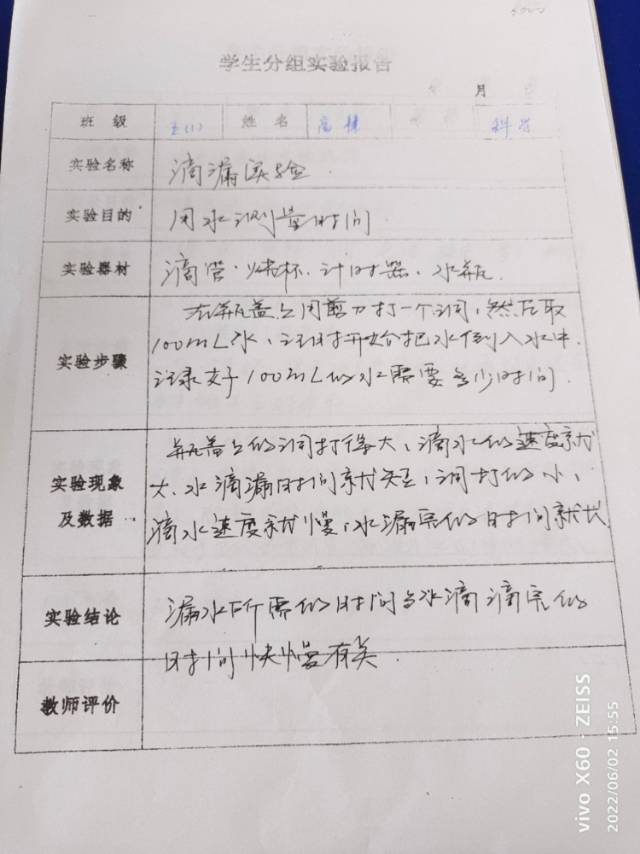 学生分组实验报告
月
班 级 五(1) 姓 名 科学
实验名称 滴漏实验
实验目的 用水测量时间
实验器材 滴管、烧杯、计时器、水瓶.
在瓶盖上用剪刀打一个洞,然后取
实验步骤 100mL水,计时开始把水倒入水中.
记录好100mL的水需要多少时间.
瓶盖上的洞打得大,滴水的速度就
实验现象 大.水滴漏时间就短,洞打的小,
及数据 滴水速度就慢,水漏完的时间就长
实验结论 漏水所需的时间与水滴滴完的
时间快慢有关.
教师评价
vivo X60 · ZEISS
2022/06/02 15:55